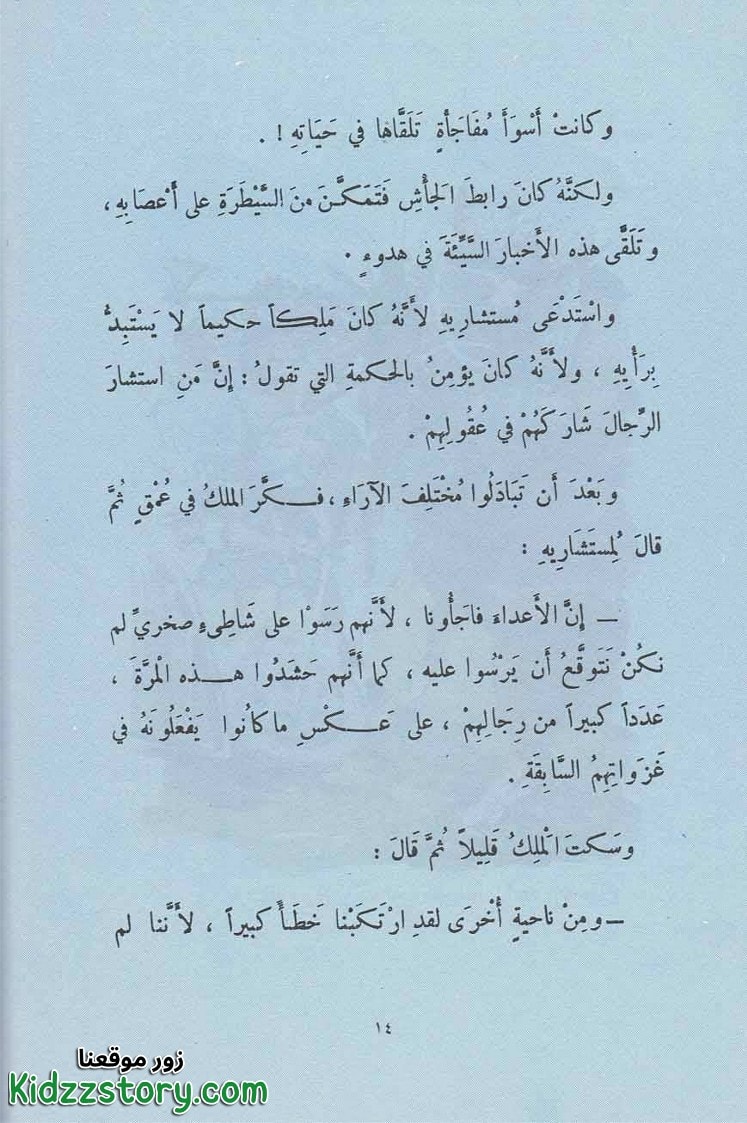 وكانتْ أَسْوَأَ مُفَاجَأَةٍ تَلَقَّاها في حَيَاتِهِ ! .
ولكنَّهُ كانَ رابطَ الجأْشِ فَتَمَكَّنَ منَ السَّيْطَرَةِ على أَعْصابِهِ ،
وتَلَقَّى هذه الأَخبارَ السَّيِّئَةَ في هدوءٍ .
واسْتَدْعَى مُستشاريهِ لأَنَّهُ كانَ مَلِكاً حكيماً لا يَسْتَبِدُّ
بِرَأْيِهِ ، ولأَنَّهُ كان يؤمِنُ بالحكمةِ التي تقولُ : إنَّ مَنِ استشارَ
الرِّجالَ شارَكَهُمْ في عُقُولِهِمْ .
وبَعْدَ أَن تَبَادَلُوا مُخْتَلِفَ الآرَاءِ ، فكَّرَ الملكُ في عُمْقٍ ثُمَّ
قالَ لمُستَشَارِيهِ :
— إنَّ الأَعداءَ فاجَأُونا ، لأَنَّهم رَسَوْا على شَاطِىءٍ صخريٍّ لم
نكُنْ نَتَوقَّعُ أَن يَرْسُوا عليه ، كما أَنَّهم حَشَدُوا هذه الْمرَّةَ ،
عَدَداً كبيراً من رِجَالِهِمْ ، على عَكْسِ ما كانُوا يَفْعَلُونَهُ في
غَزَواتِهِمُ السَّابِقَةِ .
وسَكتَ الْملِكُ قَلِيلاً ثُمَّ قَالَ :
— ومِنْ ناحيةٍ أُخْرَى لقدِ ارْتَكَبْنا خَطَأً كبيراً ، لأَنَّنا لم
١٤
زور موقعنا
Kidzzstory.com